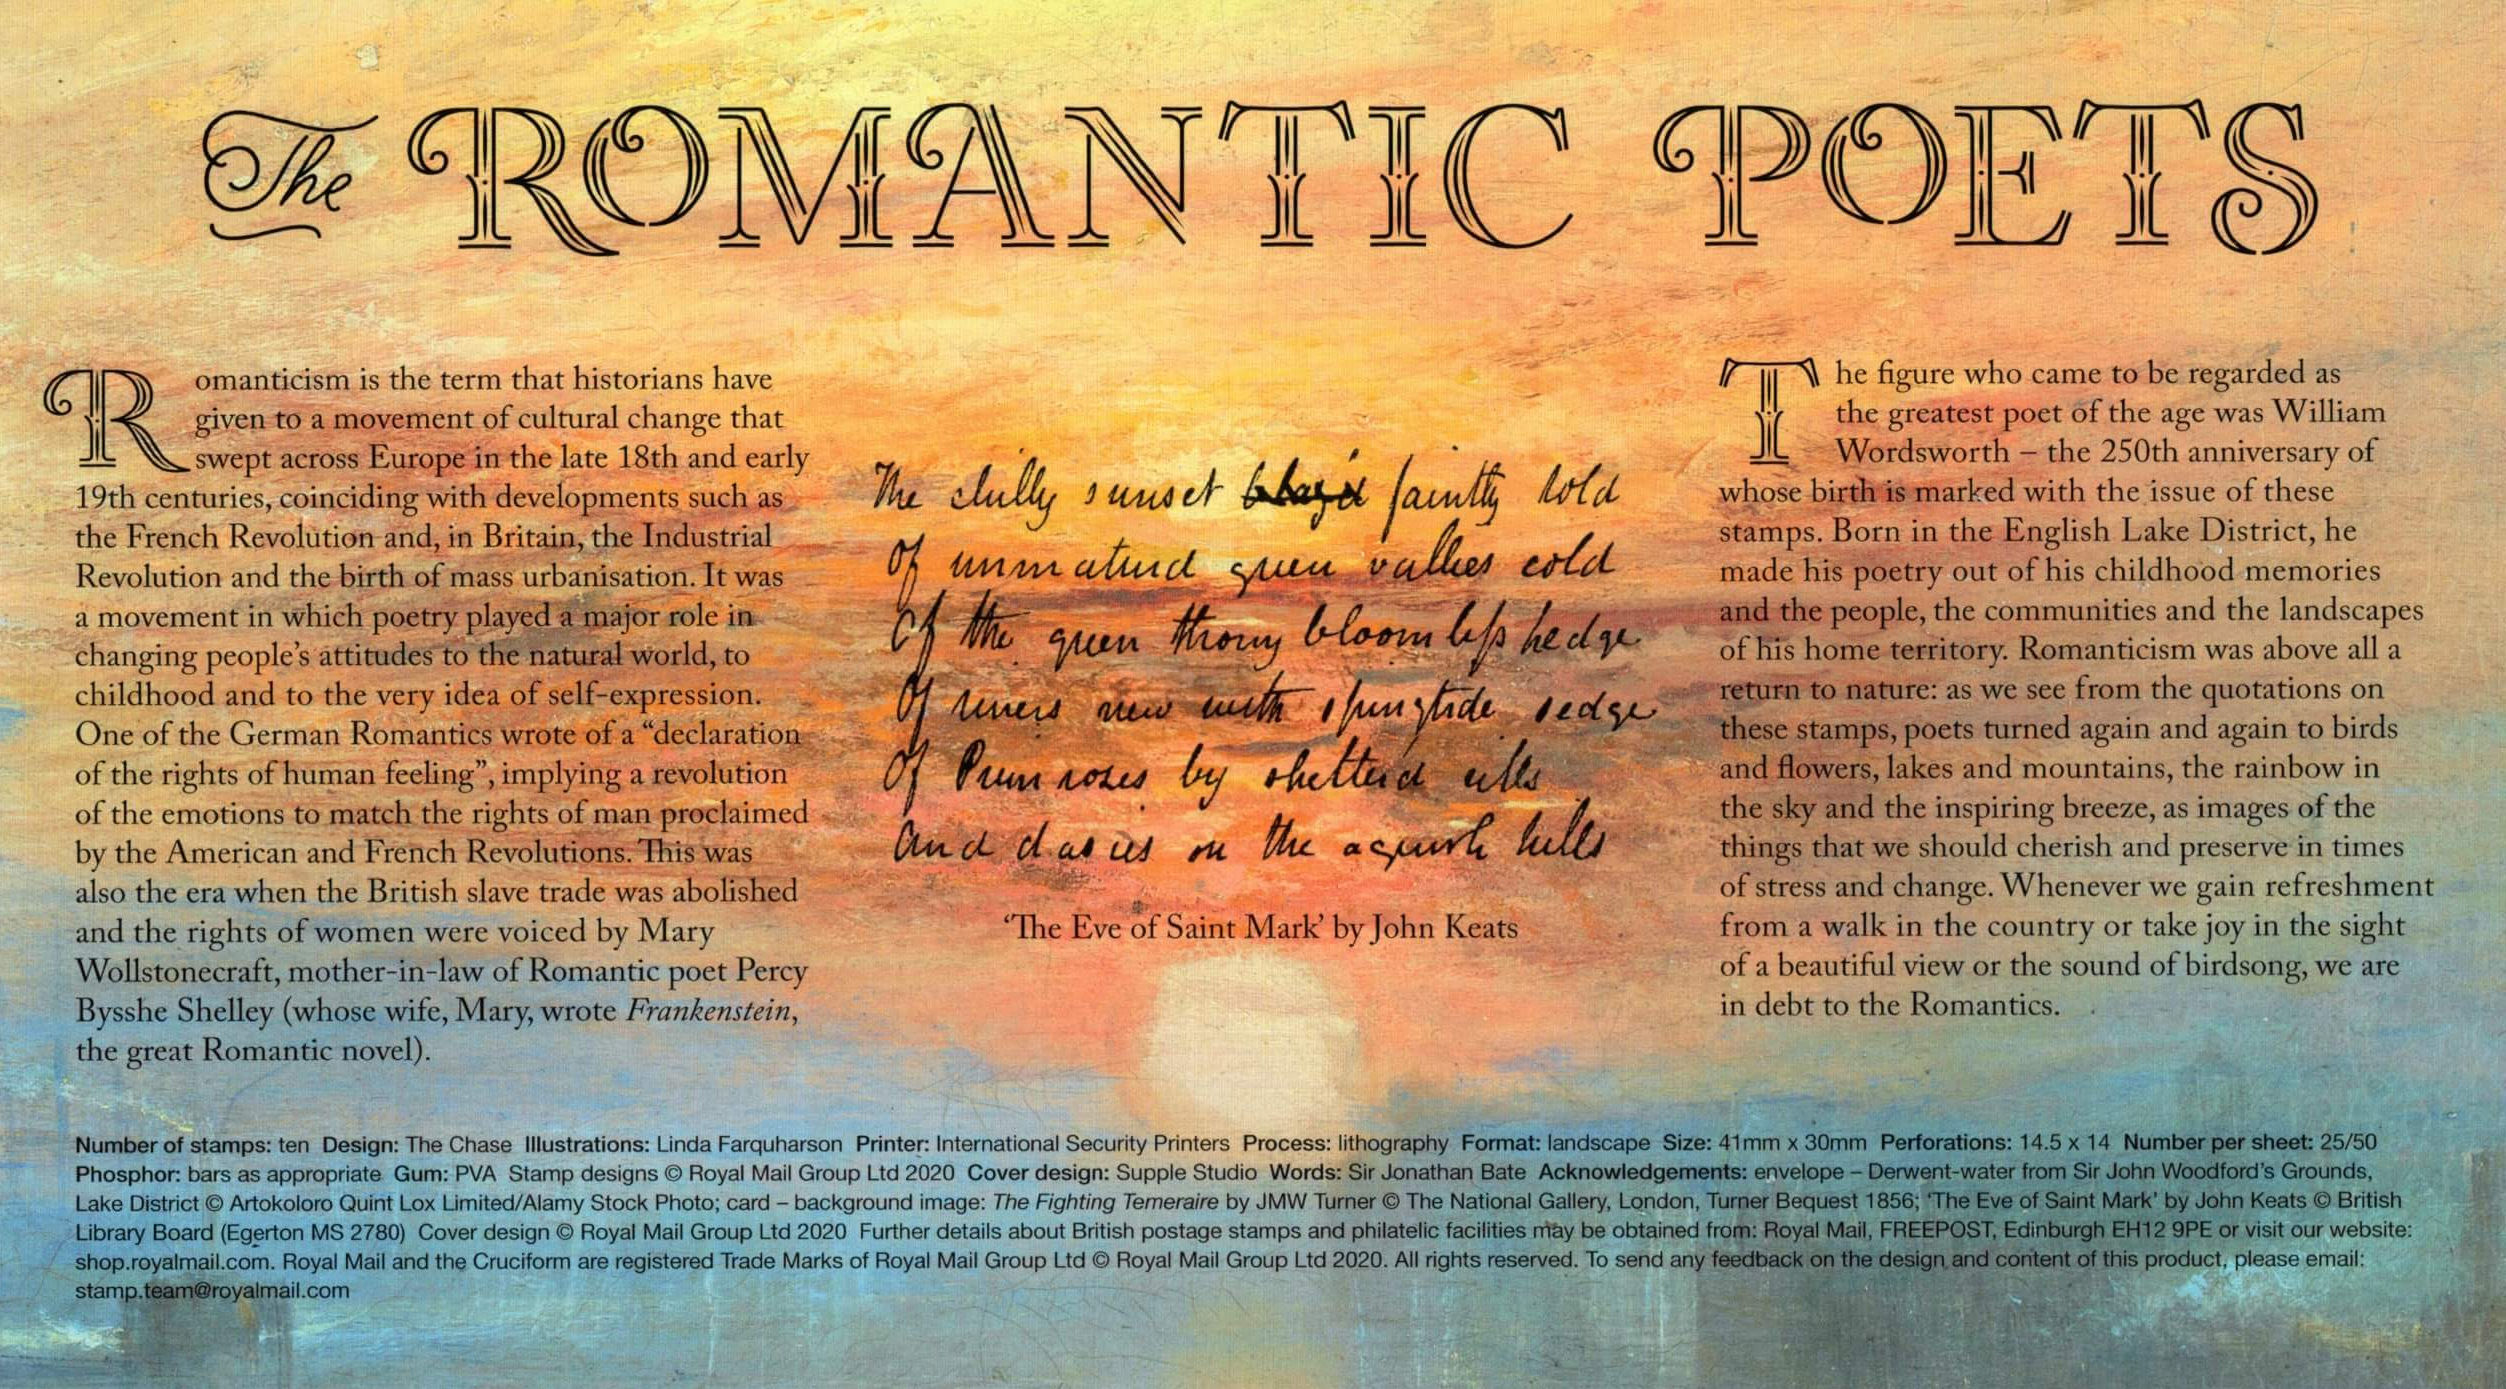 The ROMANTIC POETS
Romanticism is the term that historians have
given to a movement of cultural change that
swept across Europe in the late 18th and early
19th centuries, coinciding with developments such as
the French Revolution and, in Britain, the Industrial
Revolution and the birth of mass urbanisation. It was
a movement in which poetry played a major role in
changing people's attitudes to the natural world, to
childhood and to the very idea of self-expression.
One of the German Romantics wrote of a “declaration
of the rights of human feeling”, implying a revolution
of the emotions to match the rights of man proclaimed
by the American and French Revolutions. This was
also the era when the British slave trade was abolished
and the rights of women were voiced by Mary
Wollstonecraft, mother-in-law of Romantic poet Percy
Bysshe Shelley (whose wife, Mary, wrote Frankenstein,
the great Romantic novel).
The chilly sunset faintly told
Of unmaturd green vallies cold
Of the green thorny bloomless hedge
Of rivers new with springtide sedge
Of Primroses by shelterd rills
And dasies on the aguish hills
‘The Eve of Saint Mark’ by John Keats
The figure who came to be regarded as
the greatest poet of the age was William
Wordsworth – the 250th anniversary of
whose birth is marked with the issue of these
stamps. Born in the English Lake District, he
made his poetry out of his childhood memories
and the people, the communities and the landscapes
of his home territory. Romanticism was above all a
return to nature: as we see from the quotations on
these stamps, poets turned again and again to birds
and flowers, lakes and mountains, the rainbow in
the sky and the inspiring breeze, as images of the
things that we should cherish and preserve in times
of stress and change. Whenever we gain refreshment
from a walk in the country or take joy in the sight
of a beautiful view or the sound of birdsong, we are
in debt to the Romantics.
Number of stamps: ten Design: The Chase Illustrations: Linda Farquharson Printer: International Security Printers Process: lithography Format: landscape Size: 41mm x 30mm Perforations: 14.5 x 14 Number per sheet: 25/50
Phosphor: bars as appropriate Gum: PVA Stamp designs © Royal Mail Group Ltd 2020 Cover design: Supple Studio Words: Sir Jonathan Bate Acknowledgements: envelope – Derwent-water from Sir John Woodford's Grounds,
Lake District © Artokoloro Quint Lox Limited/Alamy Stock Photo; card – background image: The Fighting Temeraire by JMW Turner © The National Gallery, London, Turner Bequest 1856; ‘The Eve of Saint Mark’ by John Keats © British
Library Board (Egerton MS 2780) Cover design © Royal Mail Group Ltd 2020 Further details about British postage stamps and philatelic facilities may be obtained from: Royal Mail, FREEPOST, Edinburgh EH12 9PE or visit our website:
shop.royalmail.com. Royal Mail and the Cruciform are registered Trade Marks of Royal Mail Group Ltd © Royal Mail Group Ltd 2020. All rights reserved. To send any feedback on the design and content of this product, please email:
stamp.team@royalmail.com